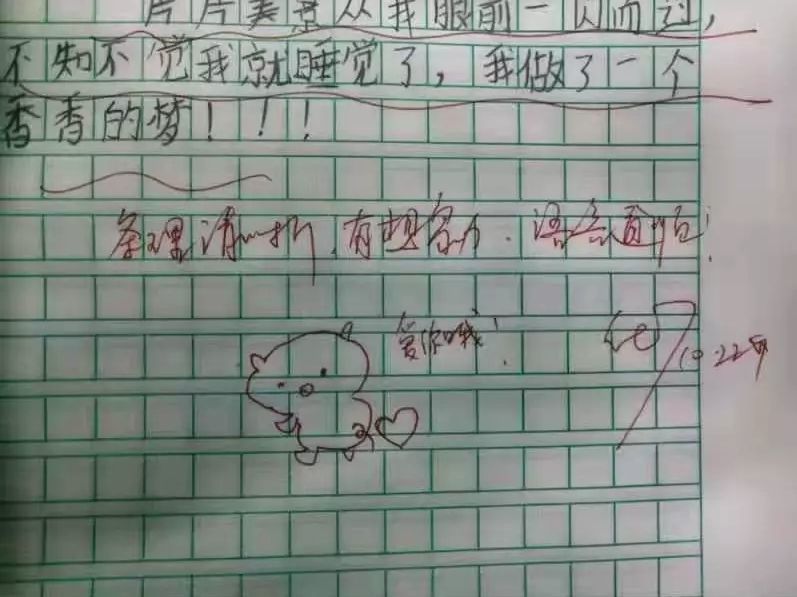 片片美景从我眼前一闪而过,
不知不觉我就睡觉了,我做了一个
香香的梦!!!
条理清晰.有想象力.语言直白!
爱你哦!
10.22